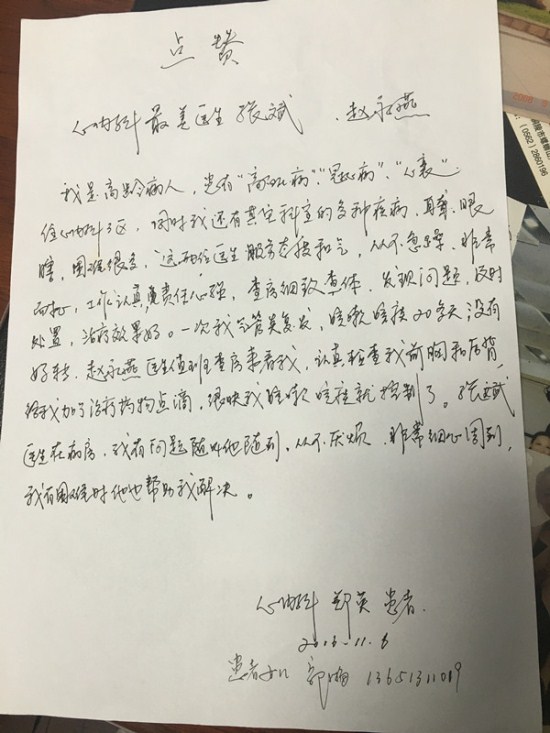 点赞
心内科最美医生张斌 赵永燕
我是高龄病人,患有“高血病”,“冠心病”,“心衰”
住心内科3区,同时我还有其它科室的多种疾病,耳聋、眼
瞎,困难很多,这两位医生服务态度和气,从不急躁,非常
耐心,工作认真负责任心强,查房细致查体,发现问题,及时
处置,治疗效果好。一次我气管炎复发,咳嗽咳痰20多天,没有
好转,赵永燕医生值班查房来看我,认真检查我前胸和后背,
给我加了治疗药物点滴,很快我咳嗽咳痰就控制了。张斌
医生在病房,我有问题随叫他随到,从不厌烦,非常细心周到,
我有困难时他也帮助我解决。
心内科 郑英 患者.
11.6
患者女儿 13651311019
(0562) 2860196